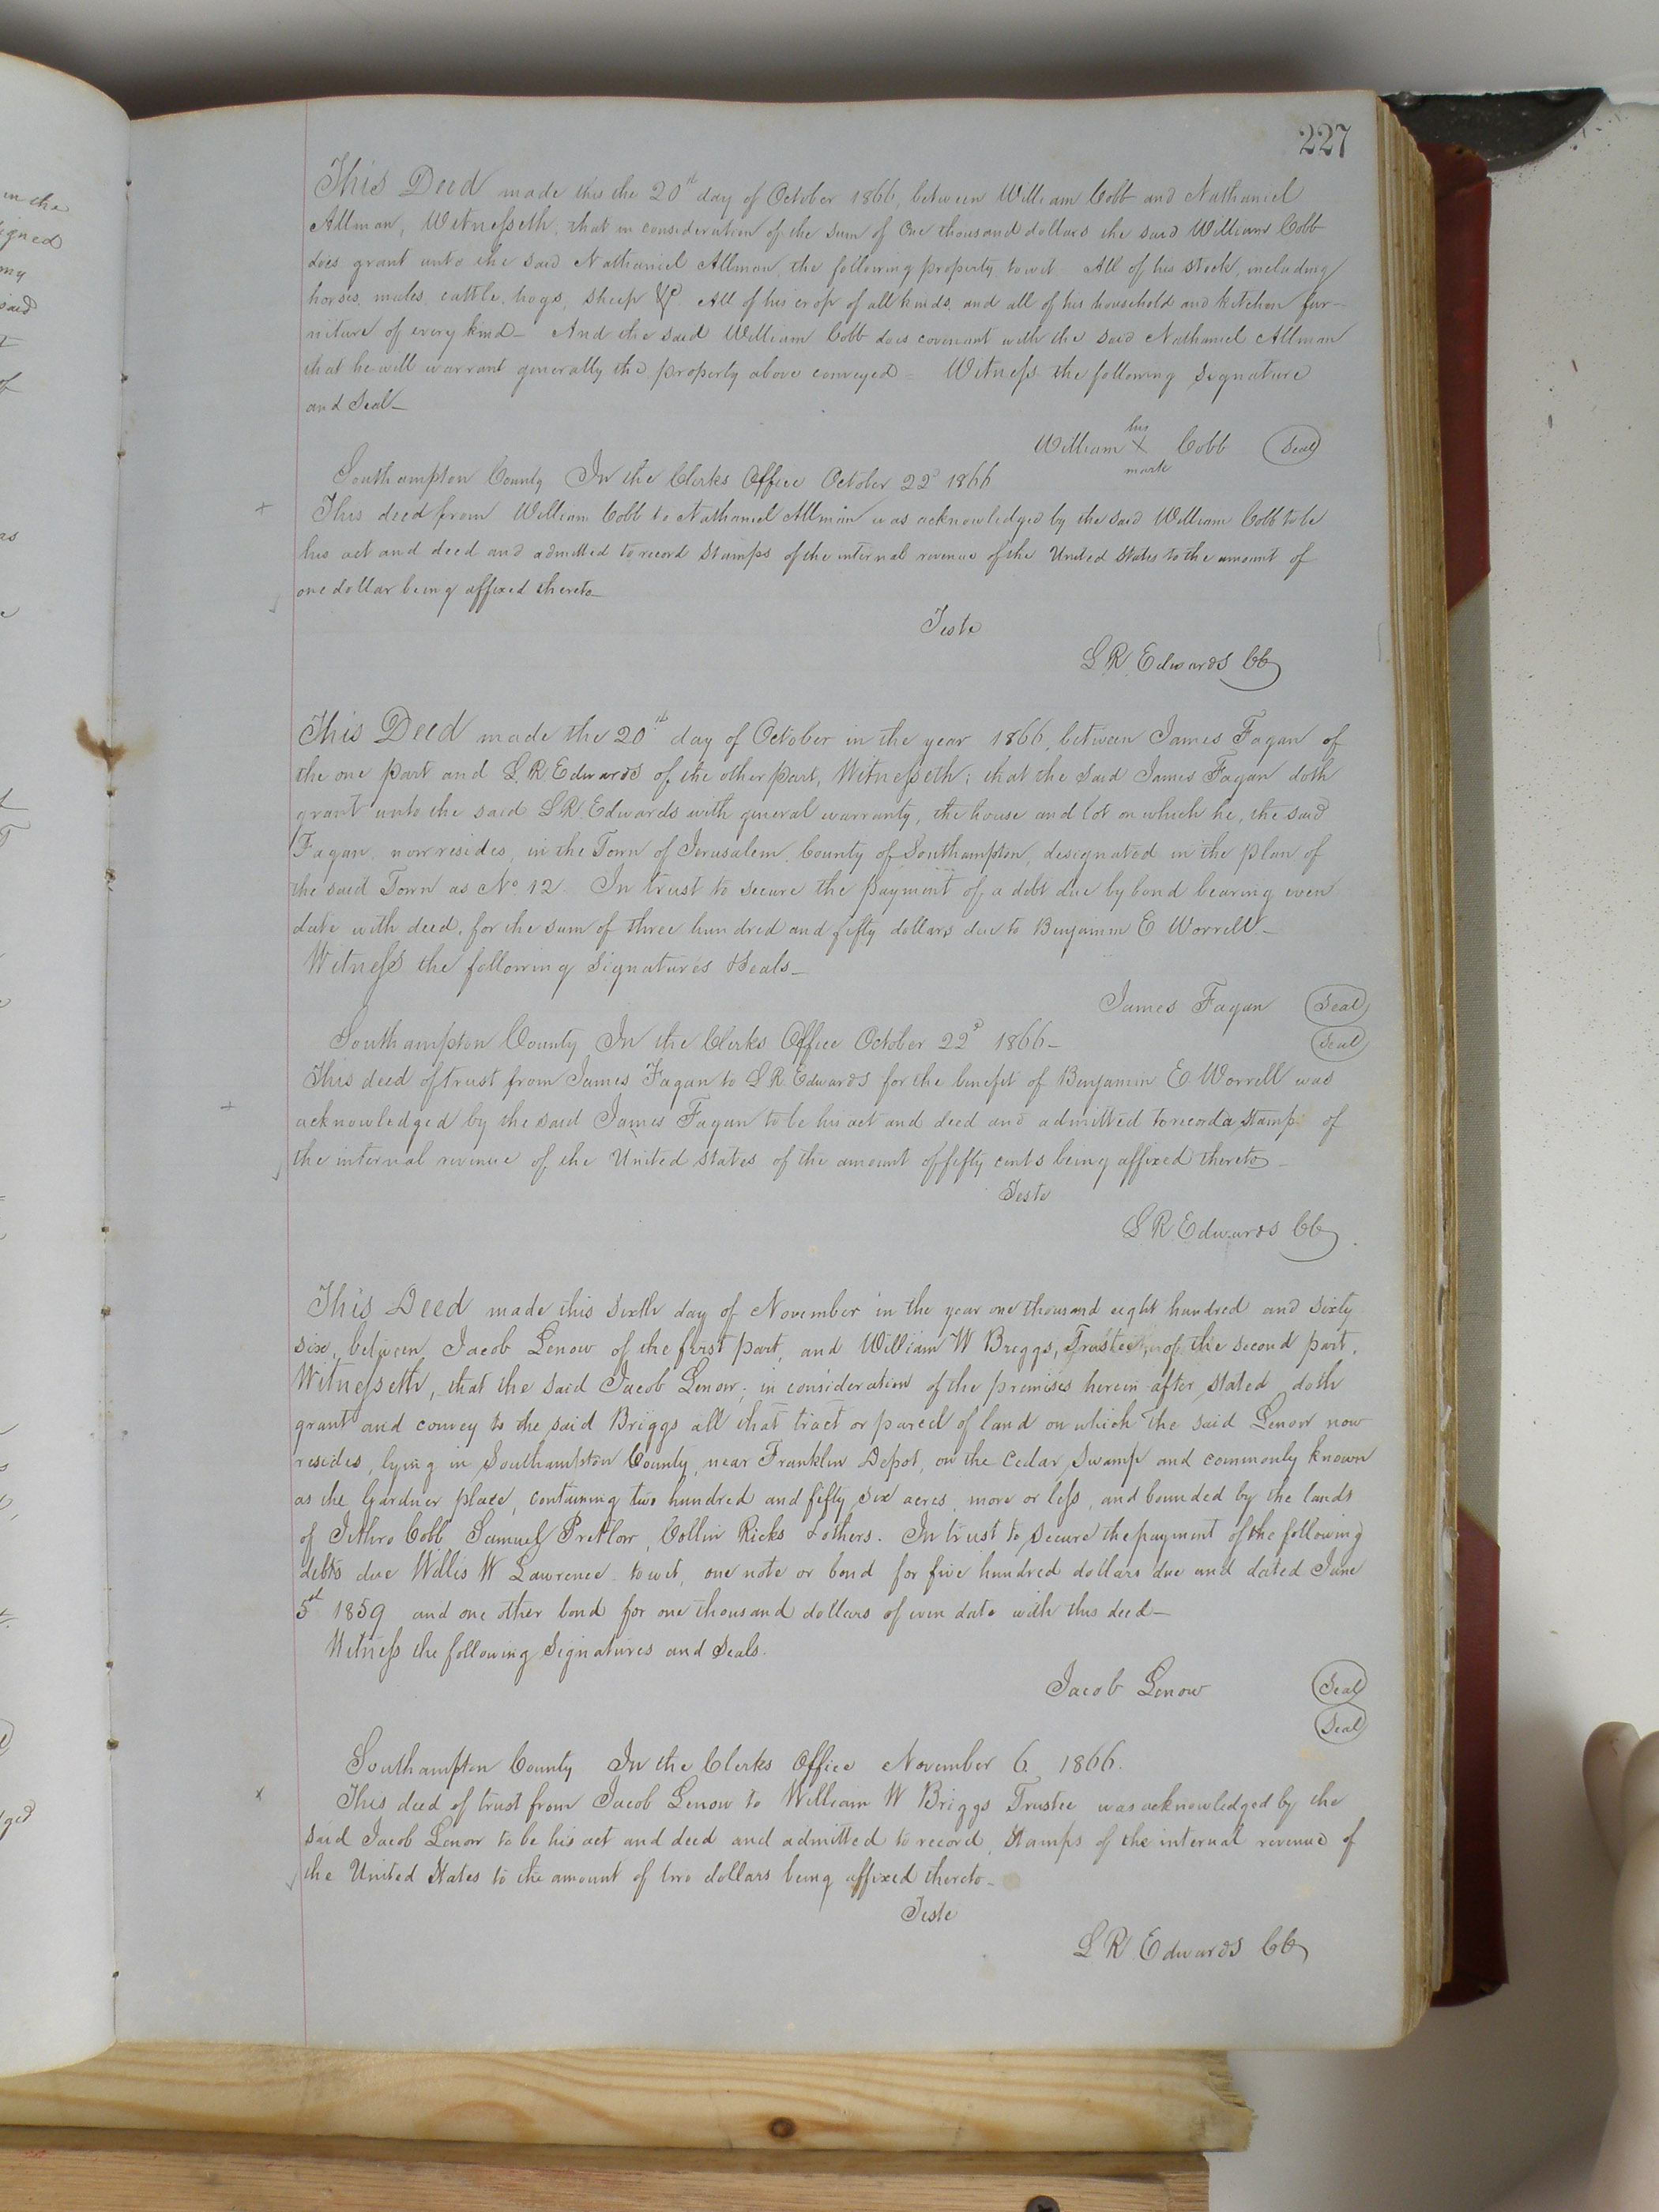 227
This Deed made this the 20th day of October 1866, between William Cobb and Nathaniel
Allman, Witnesseth, that in consideration of the sum of One thousand dollars the said William Cobb
does grant unto the said Nathaniel Allman, the following property towit All of his stock, including
horses, mules, cattle, hogs, sheep &c. All of his crop of all kinds, and all of his household and kitchen fur-
niture of every kind— And the said William Cobb does covenant with the said Nathaniel Allman
that he will warrant generally the property above conveyed— Witness the following signature
and seal—
William his X mark Cobb (Seal)
Southampton County In the Clerks Office October 22d 1866
This deed from William Cobb to Nathaniel Allman was acknowledged by the said William Cobb to be
his act and deed and admitted to record stamps of the internal revenue of the United States to the amount of
one dollar being affixed thereto—
Teste
L R Edwards CC
This Deed made the 20th day of October in the year 1866, between James Fagan of
the one part and L. R Edwards of the other part, Witnesseth; that the said James Fagan doth
grant unto the said L R. Edwards with general warranty, the house and lot on which he, the said
Fagan, now resides, in the Town of Jerusalem, County of Southampton, designated in the plan of
the said Town as No. 12. In trust to secure the payment of a debt due by bond bearing even
date with deed, for the sum of three hundred and fifty dollars due to Benjamin E Worrell—
Witness the following signatures & seals—
James Fagan (Seal)
(Seal)
Southampton County In the Clerks Office October 22d 1866—
This deed of trust from James Fagan to L R. Edwards for the benefit of Benjamin E Worrell was
acknowledged by the said James Fagan to be his act and deed and admitted to record a stamp of
the internal revenue of the United States of the amount of fifty cents being affixed thereto—
Teste
L R Edwards CC
This Deed made this sixth day of November in the year one thousand eight hundred and sixty
six, between Jacob Lenow of the first part, and William W Briggs, Trustee, of the second part.
Witnesseth, that the said Jacob Lenow; in consideration of the premises herein after stated doth
grant and convey to the said Briggs all that tract or parcel of land on which the said Lenow now
resides, lying in Southampton County, near Franklin Depot, on the Cedar Swamp and commonly known
as the Gardner place, containing two hundred and fifty six acres, more or less, and bounded by the lands
of Jethro Cobb Samuel Pretlow, Collin Ricks & others. In trust to secure the payment of the following
debts due Willis W Lawrence towit, one note or bond for five hundred dollars due and dated June
5th 1859 and one other bond for one thousand dollars of even date with this deed—
Witness the following signatures and seals.
Jacob Lenow (Seal)
(Seal)
Southampton County In the Clerks Office November 6 1866.
This deed of trust from Jacob Lenow to William W Briggs Trustee was acknowledged by the
said Jacob Lenow to be his act and deed and admitted to record, stamps of the internal revenue of
the United States to the amount of two dollars being affixed thereto—
Teste
L R Edwards CC